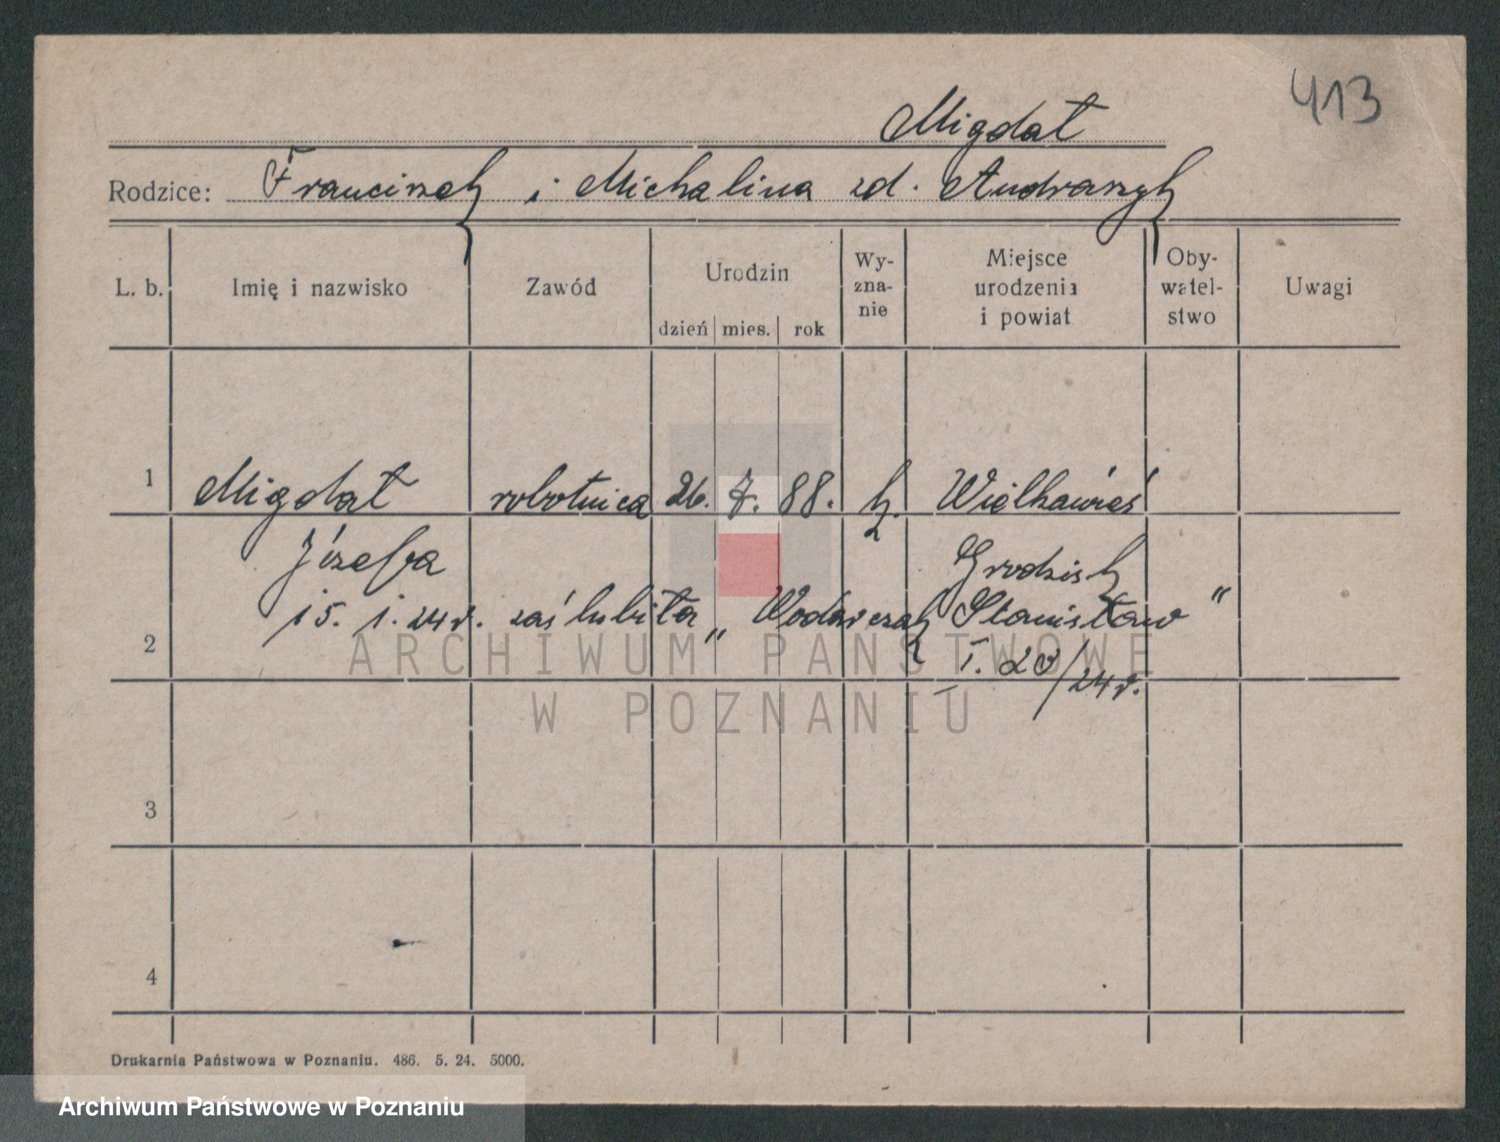 413
Migdał
Rodzice: Franciszek i Michalina zd. Andraszyk
L. b. Imię i nazwisko Zawód Urodzin dzień mies. rok Wy-zna-nie Miejsce urodzenia i powiat Oby-watel-stwo Uwagi
1 Migdał robotnica 26. 7. 88. k. Wielkawieś
Józefa Grodzisk
15. 1. 24r. zaślubiła „Wodawczak Stanisław"
2 I. 20/24r.
ARCHIWUM PAŃSTWOWE
W POZNANIU
3
4
Drukarnia Państwowa w Poznaniu. 486. 5. 24. 5000.
Archiwum Państwowe w Poznaniu